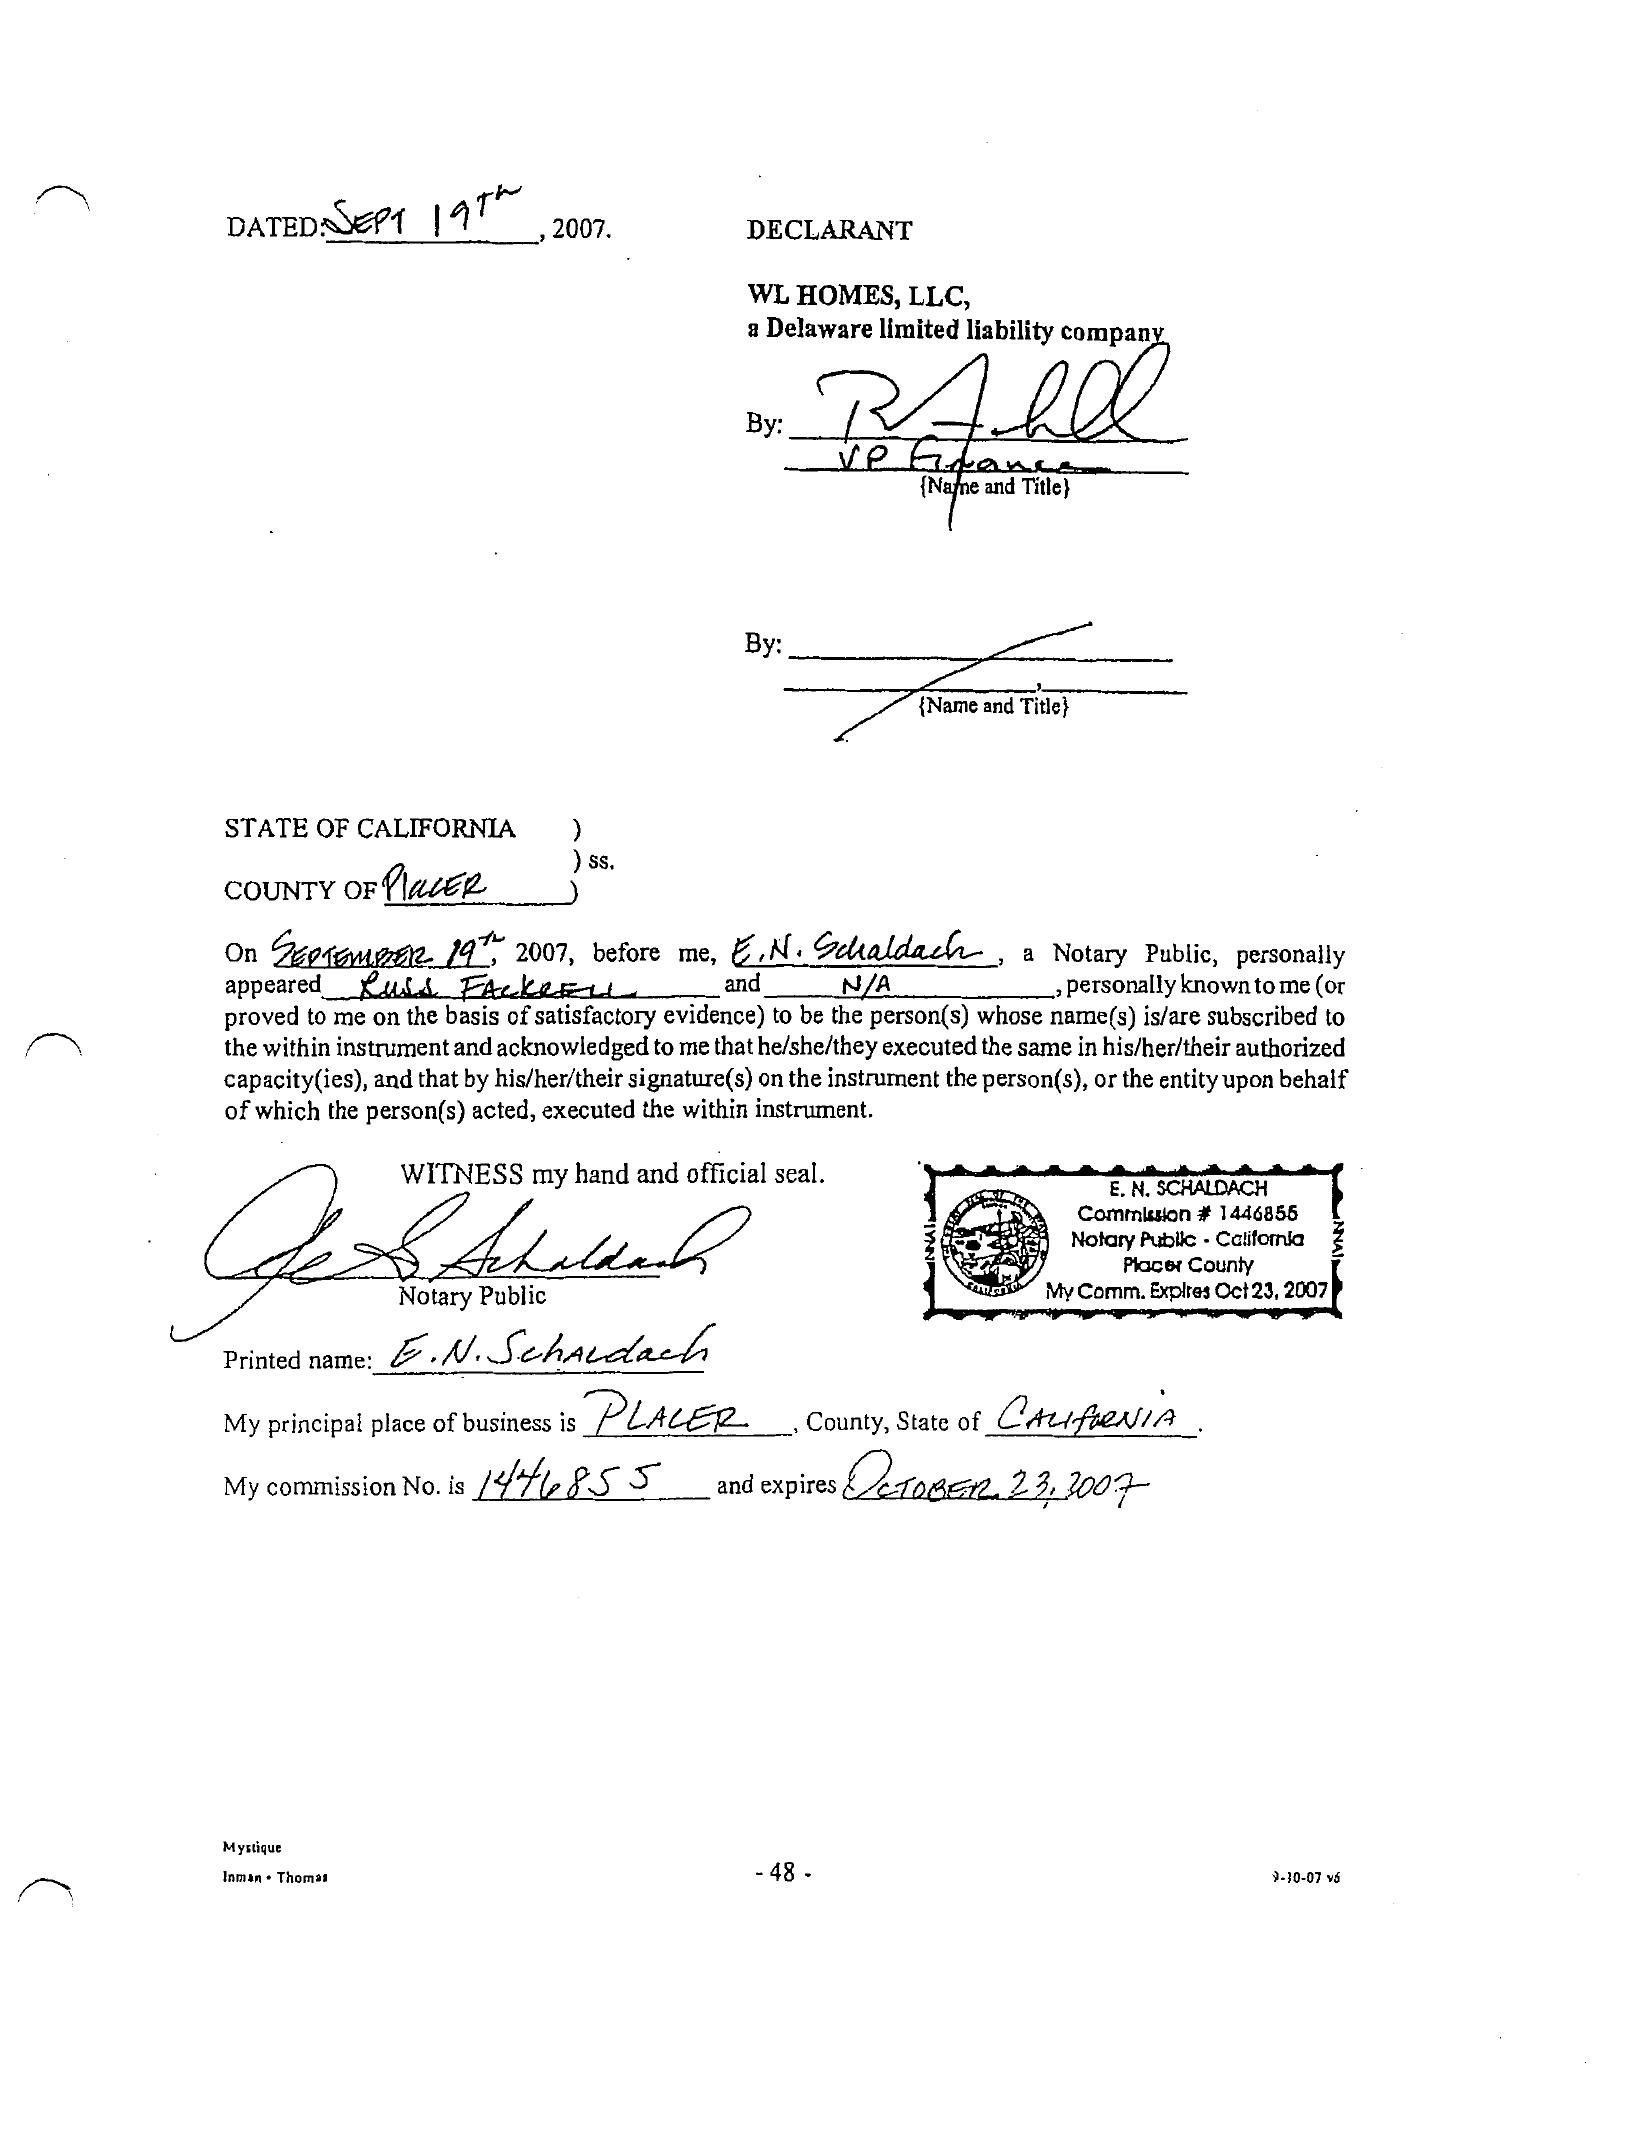 DATED: SEPT 19TH, 2007.
DECLARANT
WL HOMES, LLC,
a Delaware limited liability company
By:
VP Finance
{Name and Title}
By:
{Name and Title}
STATE OF CALIFORNIA )
) ss.
COUNTY OF PLACER )
On SEPTEMBER 19th, 2007, before me, E.N. Schaldach, a Notary Public, personally
appeared Russ FAckrELL and N/A, personally known to me (or
proved to me on the basis of satisfactory evidence) to be the person(s) whose name(s) is/are subscribed to
the within instrument and acknowledged to me that he/she/they executed the same in his/her/their authorized
capacity(ies), and that by his/her/their signature(s) on the instrument the person(s), or the entity upon behalf
of which the person(s) acted, executed the within instrument.
WITNESS my hand and official seal.
Schaldach
Notary Public
E. N. SCHALDACH
Commission # 1446855
Notary Public - California
Placer County
My Comm. Expires Oct 23, 2007
Printed name: E.N. Schaldach
My principal place of business is PLACER, County, State of CALIFORNIA.
My commission No. is 1446855 and expires OCTOBER 23, 2007
Mystique
Inman • Thomas
- 48 -
9-10-07 v6